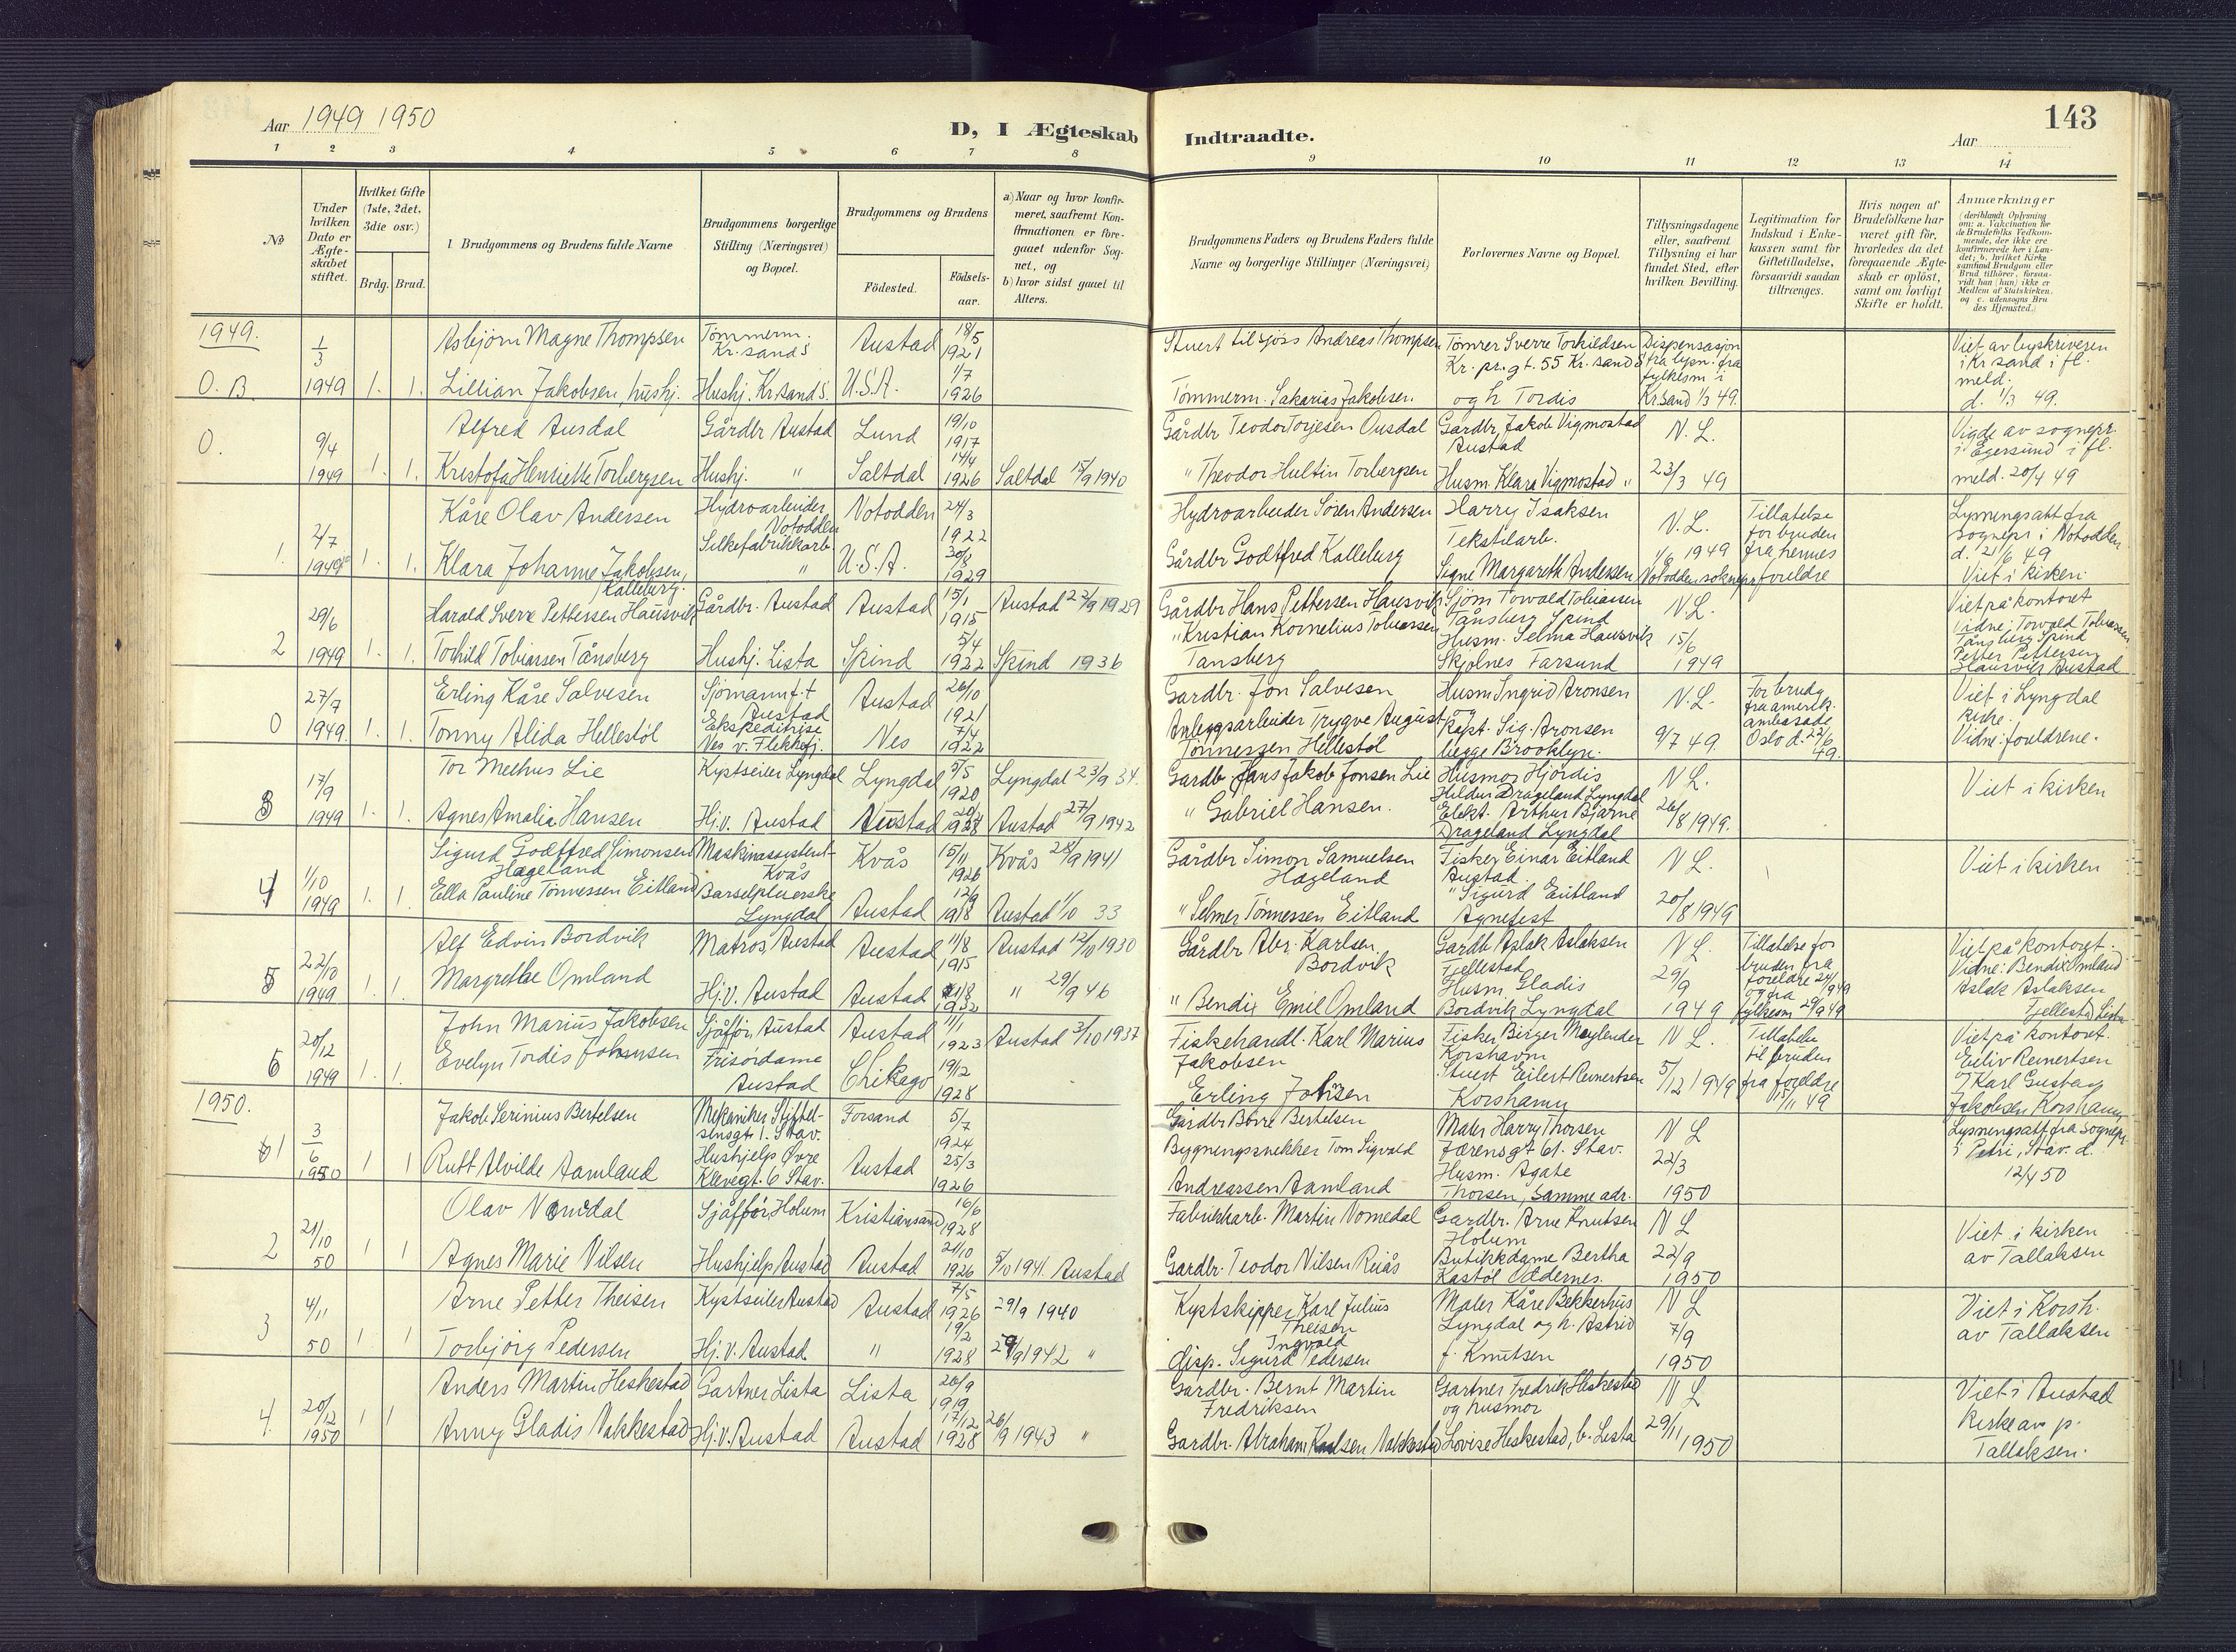 Aar 1949 1950
D, I Ægteskab
Indtraadte.
Aar
143
1 2 3 4 5 6 7 8
9 10 11 12 13 14
No
Under hvilken Dato er Ægteskabet stiftet.
Hvilket Gifte (1ste, 2det, 3die osv.)
Brdg. Brud.
Brudgommens og Brudens fulde Navne
Brudgommens borgerlige Stilling (Næringsvei) og Bopæl.
Brudgommens og Brudens
Födested.
Födsels-aar.
a) Naar og hvor konfir-
meret, saafremt Kon-
firmationen er fore-
gaaet udenfor Sog-
net, og
b) hvor sidst gaaet til
Alters.
Brudgommens Faders og Brudens Faders fulde
Navne og borgerlige Stillinger (Næringsvei)
Forlovernes Navne og Bopæl.
Tillysningsdagene
eller, saafremt
Tillysning ei har
fundet Sted, efter
hvilken Bevilling.
Legitimation for
Indskud i Enke-
kassen samt for
Giftetilladelse,
forsaavidt saadan
tiltrænges.
Hvis nogen af
Brudefolkene har
været gift för,
hvorledes da det
foregaaende Ægte-
skab er oplöst,
samt om lovligt
Skifte er holdt.
Anmærkninger
(deriblandt Oplysning
om: a. Vakcination for
de Brudefolks Vedkom-
mende, der ikke ere
konfirmerede her i Lan-
det; b. hvilket Kirke
samfund Brudgom eller
Brud tilhörer, forsaa-
vidt han (hun) ikke er
Medlem af Statskirken.
og c. udensogns Bru
des Hjemsted.)
1949.
O. B. 1/3 1949 1. 1.
Asbjørn Magne Thompsen Tömmerm. Kr. sand S Austad 18/5 1921
Lillian Jakobsen, hushj. Hushj. Kr.sand S. U.S.A. 1/7 1926
Stuert tilsjøss Andreas Thompsen
Tømmerm. Sakarias Jakobsen
Tømrer Sverre Torkildsen
Kr. pr. gt. 55 Kr. sand S
og h Tordis
Dispensasjon
fra lysn. fra
fylkesm i
Kr.sand 1/3 49.
Viet av byskriveren
i Kr sand i fl.
meld.
d. 1/3 49.
O. 9/4 1949 1. 1.
Alfred Ausdal Gårdbr Austad Lund 19/10 1917
Kristofa Henriette Torbergsen Hushj. " Saltdal 14/4 1926 Saltdal 15/9 1940
Gårdbr Teodor Torjesen Ousdal
" Theodor Hultin Torbergsen
Gårdbr, Jakob Vigmostad
Austad
Husm. Klara Vigmostad "
N. L.
23/3 49
Vigde av sognepr.
i Egersund i fl.
meld. 20/4 49
1. 2/7 1949 1. 1.
Kåre Olav Andersen Hydroarbeider Notodden Notodden 24/3 1922
Klara Johanne Jakobsen, Kalleberg. Silkefabrikkarb. " U.S.A. 30/8 1929
Hydroarbeider Søren Andersen
Gårdbr Godtfred Kalleberg
Harry Isaksen
Tekstilarb.
Signe Margareth Andersen
N. L.
1/6 1949
Notodden soknepr
Tillatelse
for bruden
fra hennes
foreldre
Lysningsatt fra
sognepr i Notodden
d. 21/6 49
Viet i kirken.
2 29/6 1949 1. 1.
Harald Sverre Pettersen Hausvik Gårdbr. Austad Austad 15/1 1915 Austad 22/9 1929
Torhild Tobiassen Tånsberg Hushj. Lista Spind 5/4 1922 Spind 1936
Gårdbr Hans Pettersen Hausvik
" Kristian Kornelius Tobiassen
Tånsberg
Sjøm Torvald Tobiassen
Tånsberg Spind
Husm. Selma Hausvik
Skjolnes Farsund
N L.
15/6
1949
Viet på kontoret
Vidne: Torvald Tobiassen
Tånsberg Spind
Petter Pettersen
Hausvik Austad
O 27/7 1949. 1. 1.
Erling Kåre Salvesen Sjömann f.t Austad Austad 26/10 1921
Tonny Alida Hellestöl Ekspeditrise Nes v. Flekkefj. Nes 7/4 1922
Gardbr. Jon Salvesen
Anleggsarbeider Trygve August
Tönnessen Hellestöl
Husm Ingrid Aronsen
og
Kapt. Sig. Aronsen
begge Brooklyn.
N. L.
9/7 49.
For brudg
fra amerik.
ambasade
Oslo d. 22/6 49.
Viet i Lyngdal
kirke.
Vidne: foreldrene.
3 17/9 1949 1. 1.
Tor Melhus Lie Kystseiler Lyngdal Lyngdal 5/5 1920 Lyngdal 23/9 34.
Agnes Amalia Hansen Hj.v. Austad Austad Austad 27/9 1942
Gardb Hans Jakob Jonsen Lie
" Gabriel Hansen.
Husmor Hjördis
Hildur Drageland Lyngdal
Elekt. Arthur Bjarne
Drageland Lyngdal
N L.
26/8 1949.
Viet i kirken
4 1/10 1949 1. 1.
Sigurd Godtfred Simonsen Hageland Maskinassistent Kvås Kvås 15/11 1926 Kvås 28/9 1941
Ella Pauline Tönnessen Eitland Barselpleierske Lyngdal Austad 12/9 1918 Austad 1/10 33
Gårdbr Simon Samuelsen
Hageland
" Selmer Tönnessen Eitland
Fisker Einar Eitland
Austad
" Sigurd Eitland
Agnefest
N L.
20/8 1949
Viet i kirken
5 22/10 1949 1. 1.
Alf Edvin Bordvik Matros, Austad Austad 11/8 1915 Austad 12/10 1930
Margrethe Omland Hj.v. Austad Austad 1932 " 29/9 46
Gårdbr Abr. Karlsen
Bordvik
" Bendix Emil Omland
Gardb Aslak Aslaksen
Fjellestad
Husm Gladis
Bordvik Lyngdal
N L.
29/9
1949
Tillatelse for
bruden fra
foreldre 24/9 49
og fra
fylkesm 29/9 49
Viet på kontoret.
Vidne: Bendix Omland
Aslak Aslaksen
Fjellestad Lista
6 20/12 1949 1. 1.
John Marius Jakobsen Sjåfför, Austad Austad 11/1 1923 Austad 3/10 1937
Evelyn Tordis Johnsen Frisördame Austad Chikago 19/12 1928
Fiskehandl. Karl Marius
Jakobsen
Erling
Fisker Birger
Korshavn
Stuert Eilert Reinertsen
Korshamn
N L.
5/12 1949
Tillatelse
til bruden
fra foreldre
15/11 49
Viet på kontoret.
Eiliv Reinertsen
Karl Gustav
Jakobsen Korshamn
1950.
1 3/6 1950 1 1
Jakob Serinius Bertelsen Mekaniker Stiftelsensgt 1. Stav. Forsand 5/7 1924
Rutt Alvilde Aamland Hushjelp Övre Klevegt. 6 Stav. Austad 25/3 1926
Gårdbr Börre Bertelsen
Bygningssnekker Tom Sigvald
Andreassen Aamland
Maler Harry Thorsen
Jærensgt 61. Stav.
Husm. Agate
Thorsen, samme adr.
N L
22/3
1950
Lysningsatt fra Sognepr.
i Petri, Stav. d.
12/4 50
2 21/10 50 1 1
Olav Nomedal Sjåffør, Holum Kristiansand 16/6 1928
Agnes Marie Nilsen Hushjelp Austad Austad 21/10 1926 5/10 1941. Austad
Fabrikkarb. Martin Nomedal
Gardbr. Teodor Nilsen Riiås
Gardbr. Arne Knutsen
Holum
Butikkdame Bertha
Kastöl Oddernes.
N L
22/9
1950
Viet i kirken
av Tallaksen
3 4/11 50 1 1
Arne Petter Theisen Kystseiler Austad Austad 7/5 1926 29/9 1940
Torbjörg Pedersen Hj.v. Austad " 19/2 1928 27/9 1942 "
Kystskipper Karl Julius
Theisen
Ingvald
disp. Sigurd Pedersen
Maler Kåre Bekkerhus
Lyngdal og h. Astrid
f. Knutsen
N L
7/9
1950
Viet i Korsh.
av Tallaksen
4. 20/12 1950 1 1
Anders Martin Heskestad Gartner Lista Lista 26/9 1919
Anny Gladis Nakkestad Hj.v. Austad Austad 17/12 1928 26/9 1943 "
Gardbr. Bernt Martin
Fredriksen
Gardbr. Abraham Karlsen Nakkestad
Gartner Fredrik Heskestad
og husmor
Lovise Heskestad, b. Lista
N L
29/11 1950
Viet i Austad
Kirke av p.
Tallaksen.